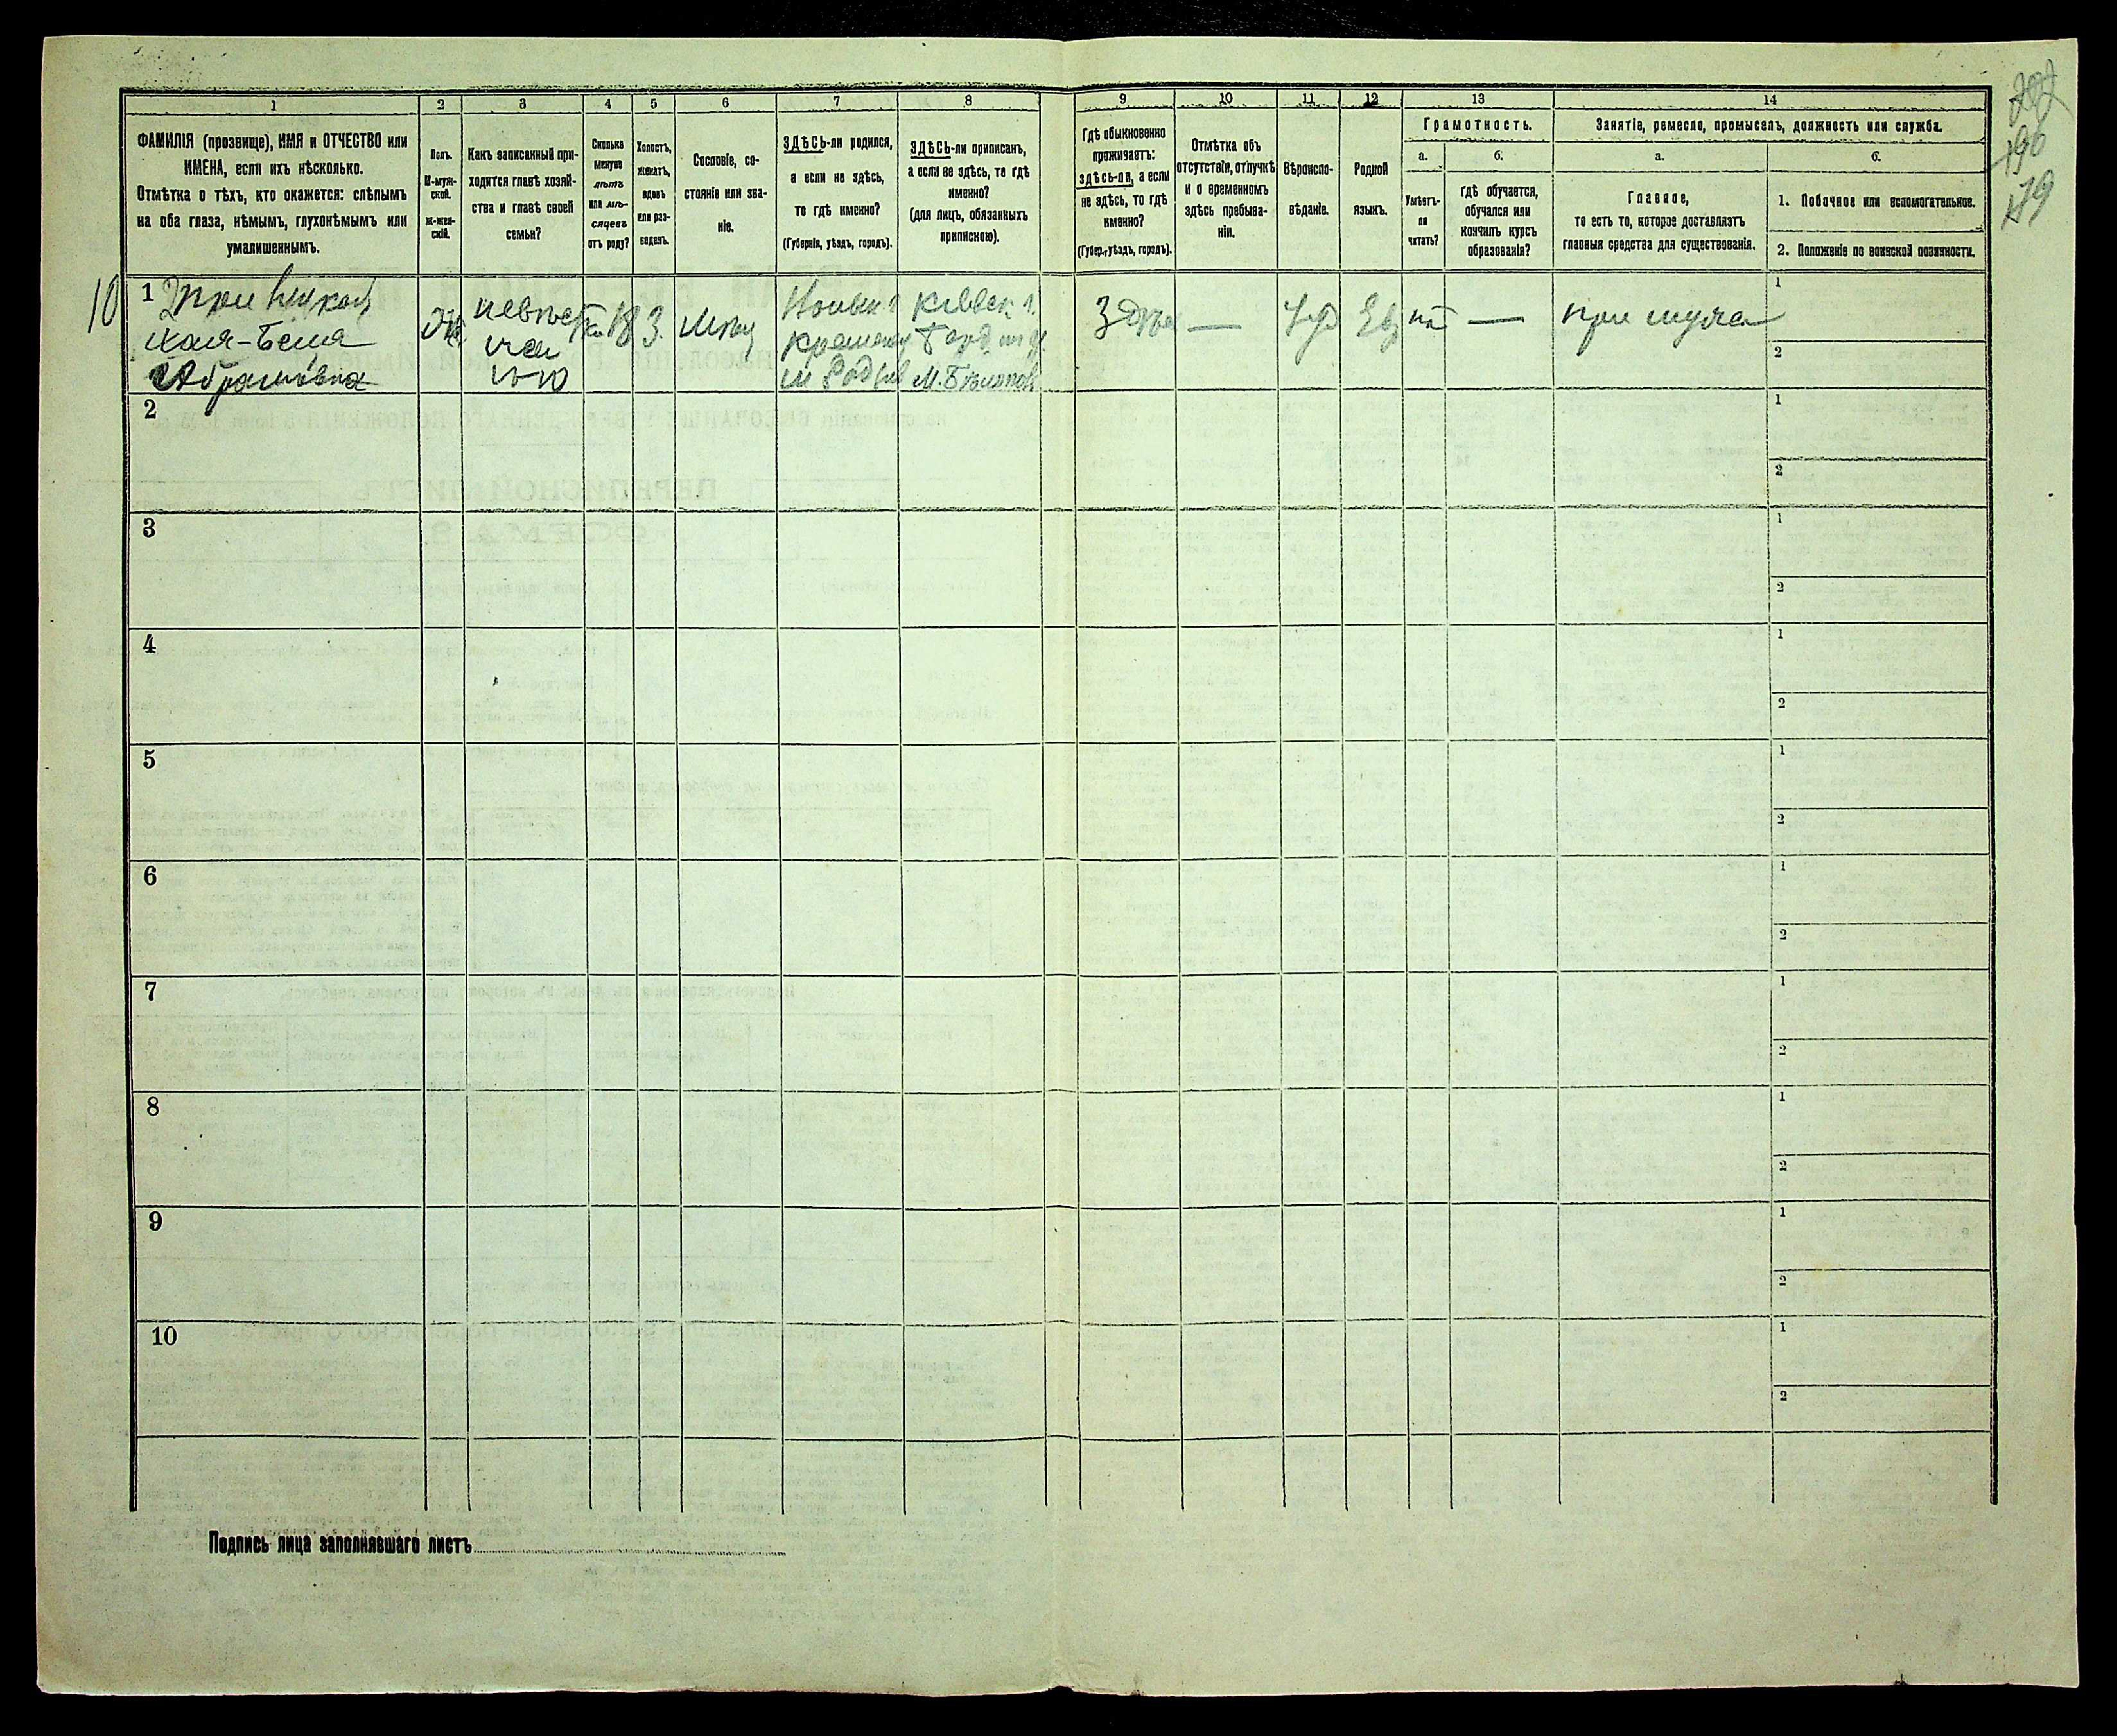 1
2
3
4
5
6
7
8
9
10
11
12
13
14
ФАМИЛІЯ (прозвище), ИМЯ и ОТЧЕСТВО или
ИМЕНА, если ихъ нѣсколько.
Отмѣтка о тѣхъ, кто окажется: слѣпымъ
на оба глаза, нѣмымъ, глухонѣмымъ или
умалишеннымъ.
Полъ.
М-муж-
ской.
ж-жен-
скій.
Какъ записанный при-
ходится главѣ хозяй-
ства и главѣ своей
семьи?
Сколько
минуло
лѣтъ
или мѣ-
сяцевъ
отъ роду?
Холостъ,
женатъ,
вдовъ
или раз-
веденъ.
Сословіе, со-
стояніе или зва-
ніе.
ЗДѢСЬ-ли родился,
а если не здѣсь,
то гдѣ именно?
(Губернія, уѣздъ, городъ).
ЗДѢСЬ-ли приписанъ,
а если не здѣсь, то гдѣ
именно?
(для лицъ, обязанныхъ
припискою).
Гдѣ обыкновенно
проживаетъ:
здѣсь-ли, а если
не здѣсь, то гдѣ
именно?
(Губер., уѣздъ, городъ).
Отмѣтка объ
отсутствіи, отлучкѣ
и о временномъ
здѣсь пребыва-
ніи.
Вѣроиспо-
вѣданіе.
Родной
языкъ.
Грамотность.
а.
Умѣетъ-
ли
читать?
б.
гдѣ обучается,
обучался или
кончилъ курсъ
образованія?
Занятіе, ремесло, промыселъ, должность или служба.
а.
Главное,
то есть то, которое доставляетъ
главныя средства для существованія.
б.
1. Побочное или вспомогательное.
2. Положеніе по воинской повинности.
196
179
10
1
Хая-Бейла
Абрамовна
Ж
18
З.
М. Бѣлилов
—
нѣт
—
при муже
1
2
2
1
2
3
1
2
4
1
2
5
1
2
6
1
2
7
1
2
8
1
2
9
1
2
10
1
2
Подпись лица заполнявшаго листъ